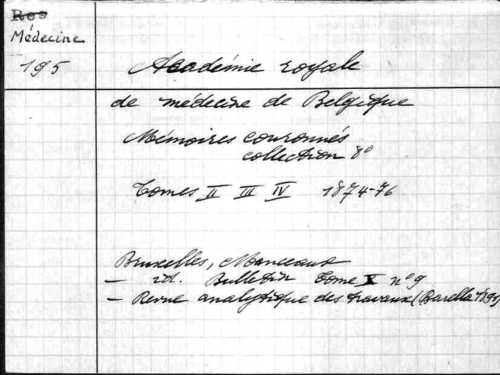 Res
Médecine
195
Académie royale
de médecine de Belgique
Mémoires couronnés
collection 8°
Tomes II III IV 1874-76
Bruxelles, Manceaux
— id. Bulletin Tome X n° 9
— Revue analytique des travaux (Barella